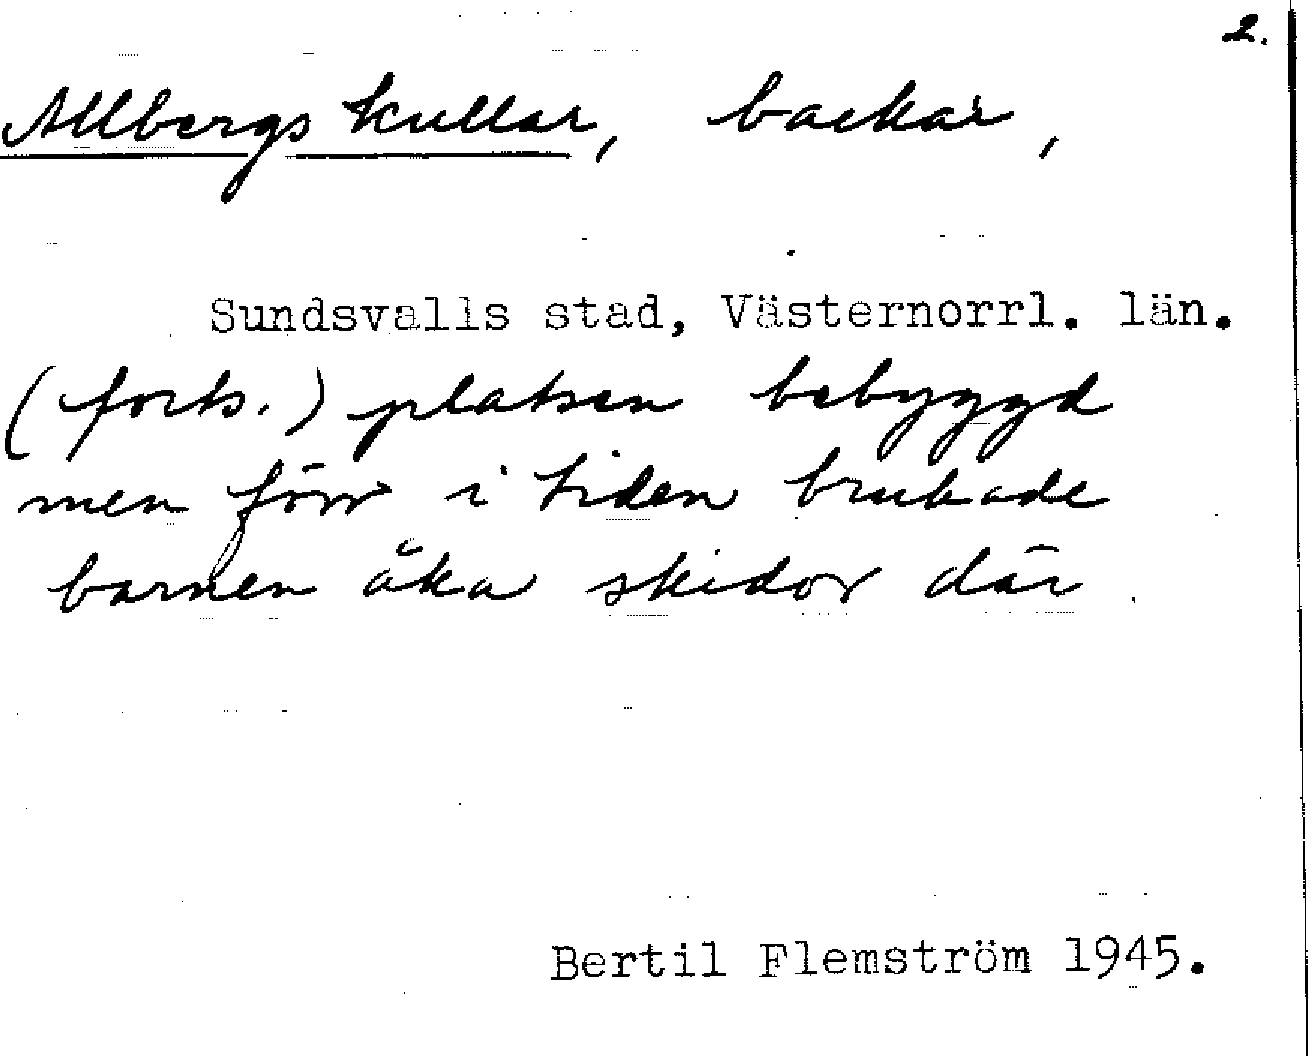 2.
Allbergs kullar, backar,
Sundsvalls stad, Västernorrl. län.
(forts.) platsen bebyggd
men förr i tiden brukade
barnen åka skidor där.
Bertil Flemström 1945.